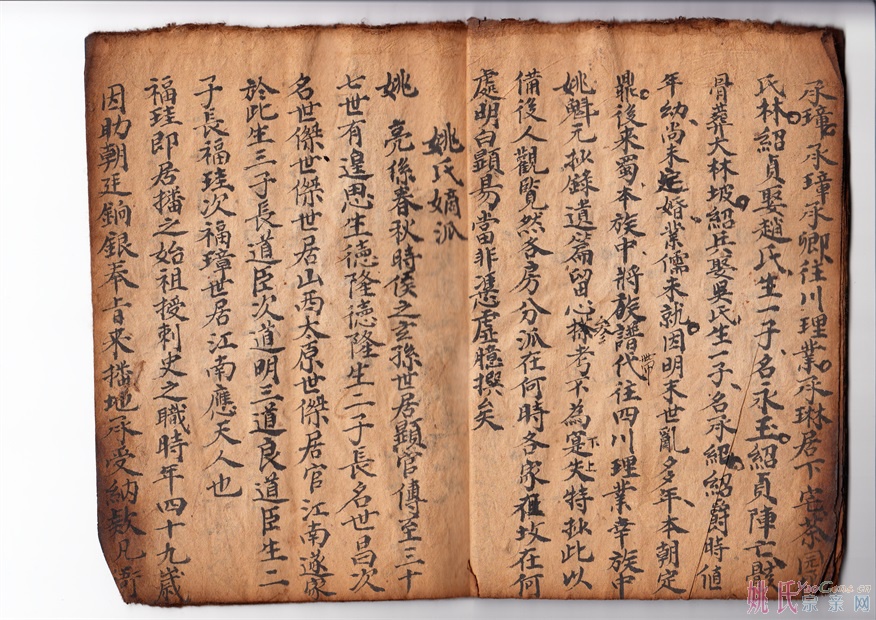 承璋承璋承卿往川理業承琳居下宅茶园
氏林紹貞娶趙氏生一子名永玉紹貞陣亡骸
骨葬大林坡紹兵娶吳氏生一子名承紹紹爵時值
年幼尚未定婚業儒未就因明末世亂多年本朝定
鼎後來蜀本族中將族譜代往四川理業幸族中
姚魁元抄錄遺篇留心叅考不為寔失特抄此以
備後人觀覧然各房分派在何時各家在坟在何
處明白顕易當非憑虛臆撰矣
姚氏嫡派
姚 亮係春秋時侯之玄孫世居顕官傳至三十
七世有遑思生德隆德隆生二子長名世昌次
名世傑世傑世居山西太原世傑居官江南遂家
於此生三子長道臣次道明三道良道臣生二
子長福珪次福璋世居江南應天人也
福珪即居播之始祖授刺史之職時年四十九歲
因助朝廷餉銀奉旨來播地承受納欵凡
姚氏宗亲网
YaoGens.cn